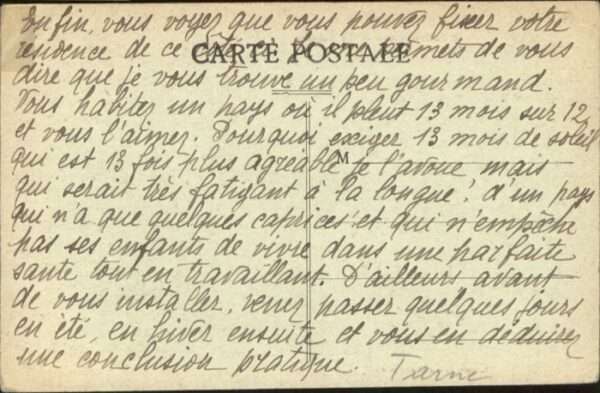 Enfin, vous voyez que vous pouvez fixer votre
résidence de ce côté et je me permets de vous
CARTE POSTALE
dire que je vous trouve un peu gourmand.
Vous habitez un pays où il pleut 13 mois sur 12,
et vous l'aimez. Pourquoi exiger 13 mois de soleil
qui est 13 fois plus agréable je l'avoue mais
M
qui serait très fatigant à la longue! d'un pays
qui n'a que quelques caprices et qui n'empêche
pas ses enfants de vivre dans une parfaite
santé tout en travaillant. D'ailleurs avant
de vous installer, venez passer quelques jours
en été, en hiver ensuite et vous en déduirez
une conclusion pratique.